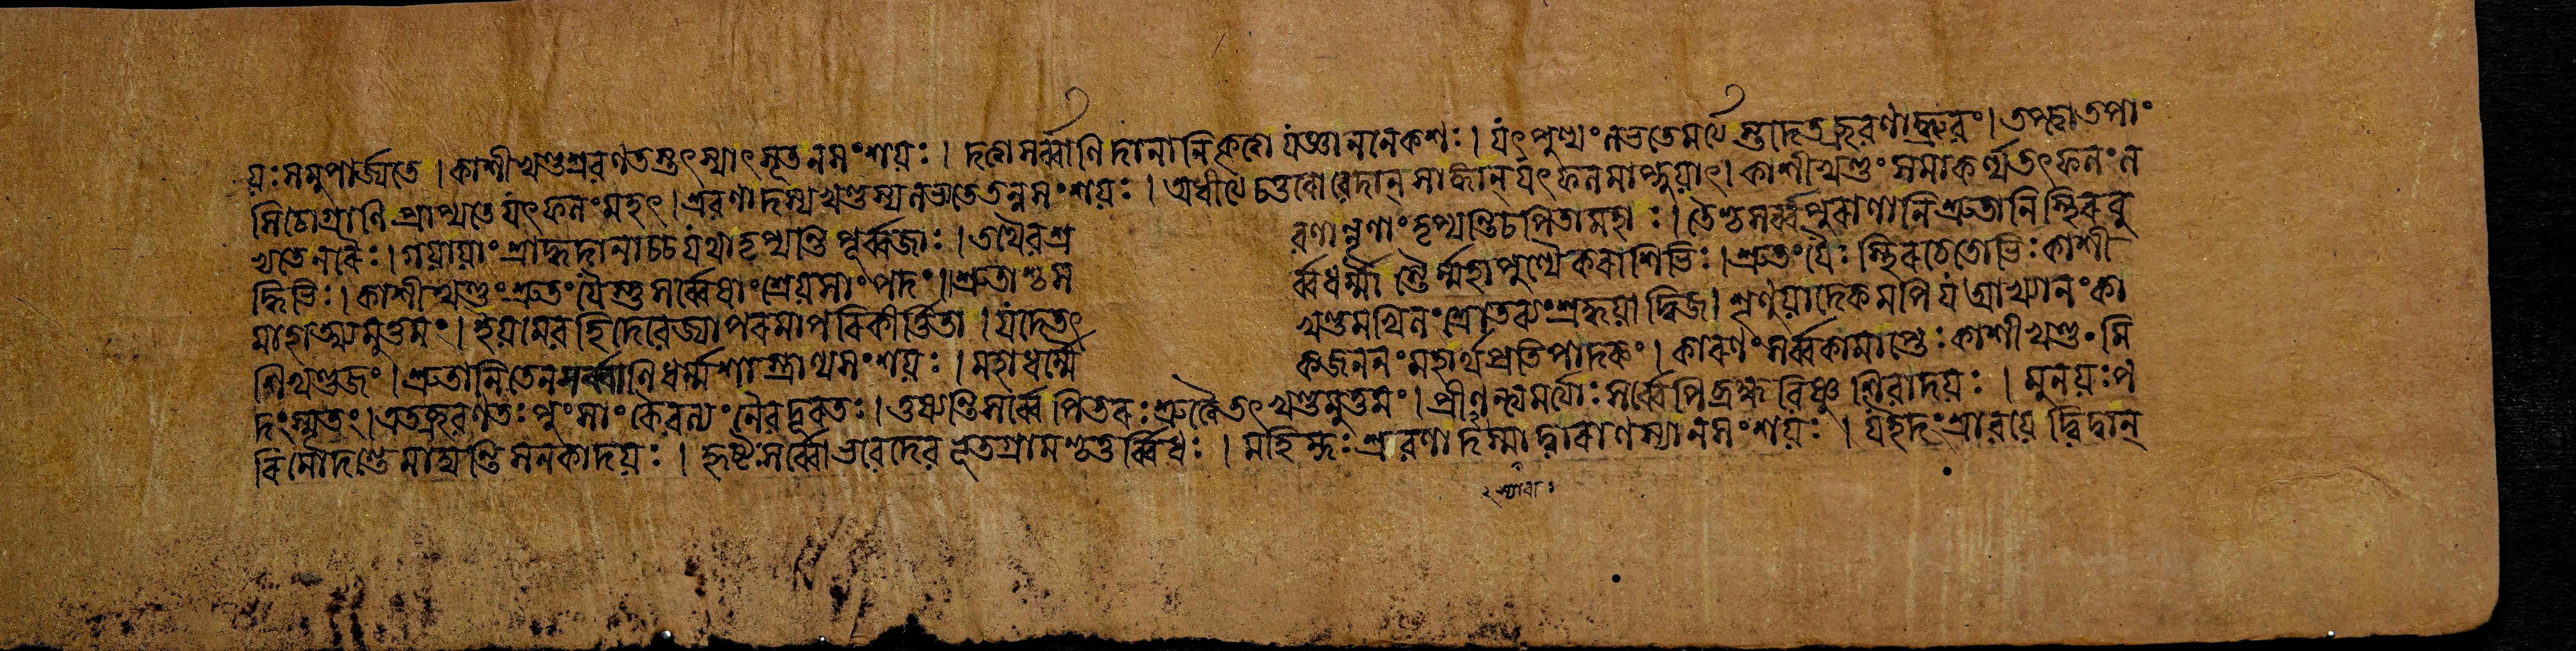 য়ঃ সমুপার্জ্যতে । কাশীখণ্ডশ্রবণতস্তৎ স্যাৎ সূত ন সংশয়ঃ । দত্ত্বা সর্ব্বাণি দানানি কৃত্বা যজ্ঞাননেকশঃ । যৎ পুণ্যং লভতে মর্ত্যস্তদেতচ্ছ্রবণাদ্ধ্রুবং । তপ্ত্বা তপাং
সি চোগ্রাণি প্রাপ্যতে যৎ ফলং মহৎ । শ্রবণাদস্য খণ্ডস্য লভতে তন্ন সংশয়ঃ । অধীত্য চতুরো বেদান্ সাঙ্গান্ যৎ ফলমাপ্নুয়াৎ । কাশীখণ্ডং সমাকর্ণ্য তৎ ফলং ল
ভ্যতে নরৈঃ । গয়ায়াং শ্রাদ্ধদানাচ্চ যথা তৃপ্যন্তি পূর্ব্বজাঃ । তথৈব শ্র বণান্নৃণাং তৃপ্যন্তি চ পিতামহাঃ । তৈশ্চ সর্ব্বপুরাণানি শ্রুতানি স্থিরবু
দ্ধিভিঃ । কাশীখণ্ডং শ্রুতং যৈস্তু সর্ব্বেষাং শ্রেয়সাং পদং । শ্রুতাশ্চ স র্ব্বধর্ম্মাস্তৈর্ম্মহাপুণ্যৈকরাশিভিঃ । শ্রুতং যৈঃ স্থিরচেতোভিঃ কাশী
মাহাত্ম্যমুত্তমং । ইয়মেব হি দেবেজ্যা পরমা পরিকীর্ত্তিতা । যদেতৎ খণ্ডমখিলং শ্রোতব্যং শ্রদ্ধয়া দ্বিজ । শৃণুয়াদেকমপি য আখ্যানং কা
শিখণ্ডজং । শ্রুতানি তেন সর্ব্বাণি ধর্ম্মশাস্ত্রাণ্যসংশয়ঃ । মহাধর্ম্মৈ কজননং মহার্থপ্রতিপাদকং । কারণং সর্ব্বকামাপ্তেঃ কাশীখণ্ডমি
দং স্মৃতং । এতচ্ছ্রবণতঃ পুংসাং কৈবল্যং নৈব দূরতঃ । তুষ্যন্তি সর্ব্বে পিতরঃ শ্রুত্বৈতৎ খণ্ডমুত্তমং । প্রীণন্ত্যমর্ত্যাঃ সর্ব্বেপি ব্রহ্মবিষ্ণুশিবাদয়ঃ । মুনয়ঃ প
রিমোদন্তে মাদ্যন্তি সনকাদয়ঃ । হৃষ্টঃ সর্ব্বো ভবেদেব ভূতগ্রামশ্চতুর্ব্বিধঃ । মহিম্নঃ শ্রবণাদস্মাদ্বারাণস্যা ন সংশয়ঃ । য ইদং শ্রাবয়েদ্বিদ্বান্